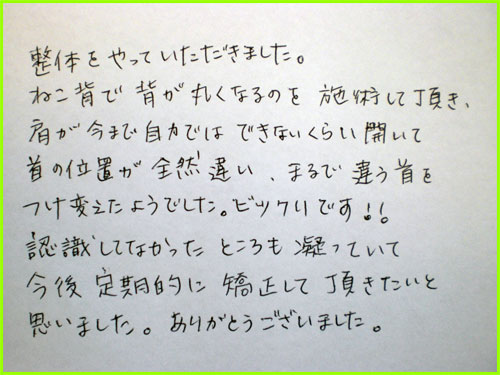 整体をやっていただきました。
ねこ背で背が丸くなるのを施術して頂き、
肩が今まで自力ではできないくらい開いて
首の位置が全然違い、まるで違う首を
つけ変えたようでした。ビックリです!!
認識してなかったところも凝っていて
今後定期的に矯正して頂きたいと
思いました。ありがとうございました。